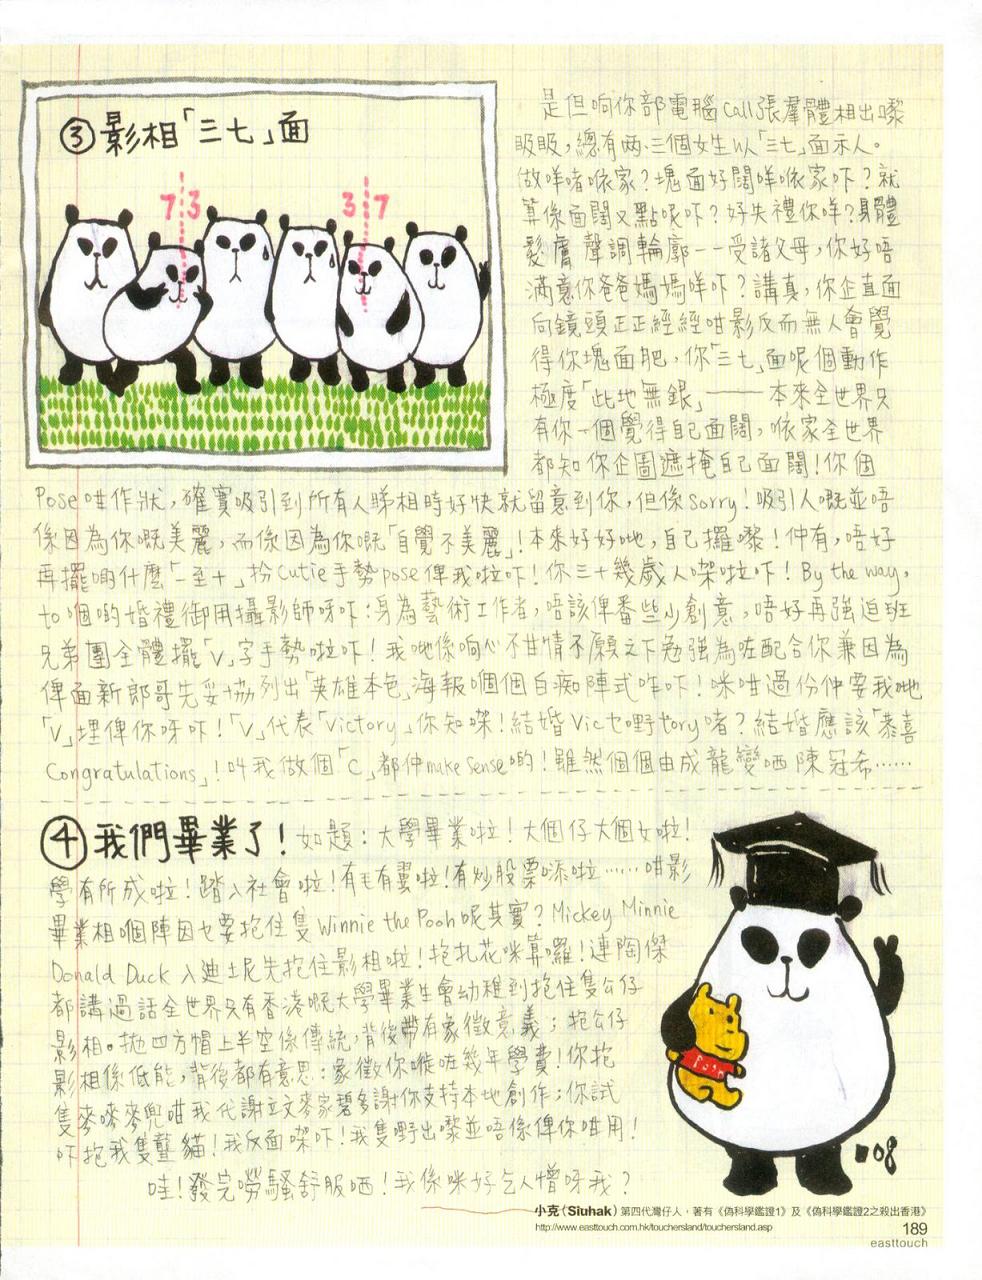 ③影相「三七」面
7 3
3 7
是但响你部電腦Call張羣體相出嚟
眨眨，總有兩、三個女生以「三七」面示人。
做咩啫𠵱家？塊面好闊咩𠵱家吓？就
算係面闊又點呢吓？好失禮你咩？身體
髮膚 聲調輪廓——受諸父母，你好唔
滿意你爸爸媽媽咩吓？講真，你企直面
向鏡頭正正經經咁影反而無人會覺
得你塊面肥，你「三七」面呢個動作
極度「此地無銀」——本來全世界只
有你一個覺得自己面闊，𠵱家全世界
都知你企圖遮掩自己面闊！你個
Pose咁作狀，確實吸引到所有人睇相時好快就留意到你，但係Sorry！吸引人嘅並唔
係因為你嘅美麗，而係因為你嘅「自覺不美麗」！本來好好哋，自己攞嚟！仲有，唔好
再擺啲什麼「一至十」扮Cutie手勢pose俾我啦吓！你三十幾歲人㗎啦吓！By the way,
to嗰啲婚禮御用攝影師呀吓：身為藝術工作者，唔該俾番些少創意，唔好再強迫班
兄弟團全體擺「V」字手勢啦吓！我哋係响心不甘情不願之下勉強為咗配合你兼因為
俾面新郎哥先妥協列出「英雄本色」海報嗰個白痴陣式咋吓！咪咁過份仲要我哋
「V」埋俾你呀吓！「V」代表「Victory」你知㗎！結婚Vic乜嘢tory啫？結婚應該「恭喜
Congratulations」！叫我做個「C」都仲make sense啲！雖然個個由成龍變晒陳冠希……
④我們畢業了！如題：大學畢業啦！大個仔大個女啦！
學有所成啦！踏入社會啦！有毛有翼啦！有炒股票添啦……咁影
畢業相嗰陣因乜要抱住隻Winnie the Pooh呢其實？Mickey Minnie
Donald Duck入迪士尼先抱住影相啦！抱扎花咪算囉！連陶傑
都講過話全世界只有香港嘅大學畢業生會幼稚到抱住隻公仔
影相。拋四方帽上半空係傳統，背後帶有象徵意義；抱公仔
影相係低能，背後都有意思：象徵你嘥咗幾年學費！你抱
隻麥嘜麥兜咁我代謝立文麥家碧多謝你支持本地創作；你試
吓抱我隻龔貓！我反面㗎吓！我隻嘢出嚟並唔係俾你咁用！
哇！發完勞騷舒服晒！我係咪好乞人憎呀我？
POOH
08
小克（Siuhak）第四代灣仔人，著有《偽科學鑑證1》及《偽科學鑑證2之殺出香港》
http://www.easttouch.com.hk/touchersland/touchersland.asp
189
easttouch